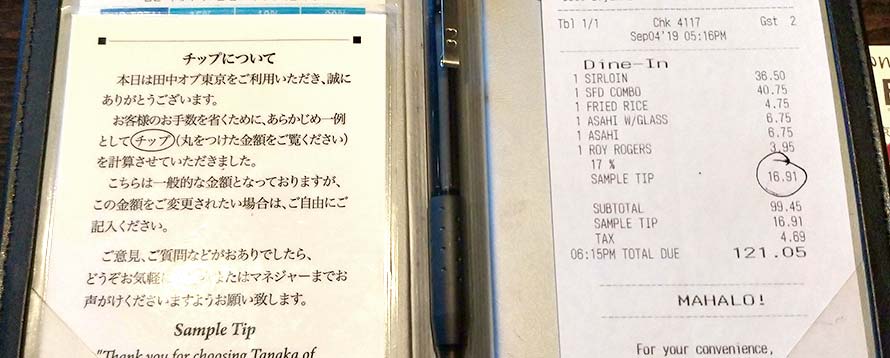 15% 18% 20%
チップについて
本日は田中オブ東京をご利用いただき、誠に
ありがとうございます。
お客様のお手数を省くために、あらかじめ一例
としてチップ(丸をつけた金額をご覧ください)
を計算させていただきました。
こちらは一般的な金額となっておりますが、
この金額をご変更されたい場合は、ご自由にご
記入ください。
ご意見、ご質問などがおありでしたら、
どうぞお気軽に またはマネジャーまでお
声がけくださいますようお願い致します。
Sample Tip
"Thank you for choosing Tanaka of
Tbl 1/1 Chk 4117 Gst 2
Sep04'19 05:16PM
Dine-In
1 SIRLOIN 36.50
1 SFD COMBO 40.75
1 FRIED RICE 4.75
1 ASAHI W/GLASS 6.75
1 ASAHI 6.75
1 ROY ROGERS 3.95
17 %
SAMPLE TIP 16.91
SUBTOTAL 99.45
SAMPLE TIP 16.91
TAX 4.69
06:15PM TOTAL DUE 121.05
MAHALO!
For your convenience,